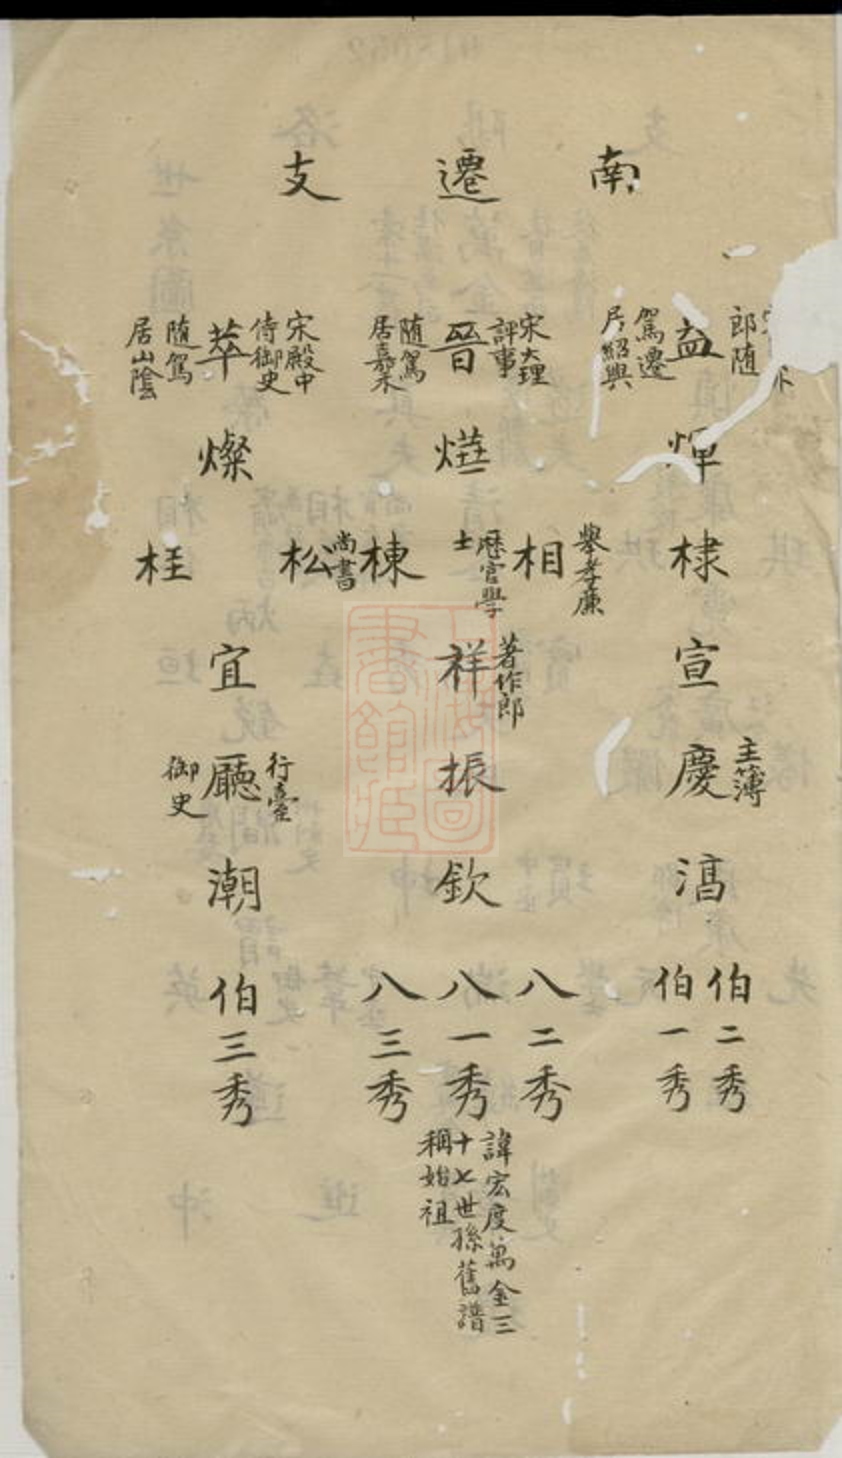 南遷支
郎隨
益
駕遷
居紹興
宋大理
評事
晉
隨駕
居嘉禾
宋殿中
侍御史
萃
隨駕
居山陰
燀
燁
燦
棣
舉孝廉
相
歷官學
士
棟
尚書
松
桂
宣
著作郎
祥
宜
主簿
慶
振
行臺
廳
御史
滈
欽
潮
伯二秀
伯一秀
八二秀
八一秀
八三秀
伯三秀
諱宏度萬金三
十七世孫舊譜
稱始祖